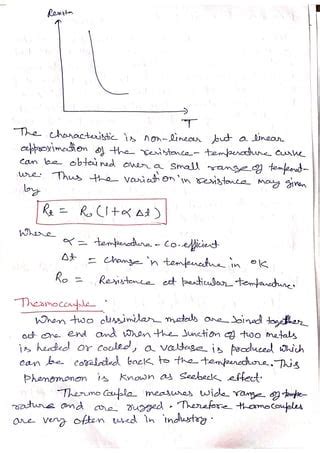 Resistan
T
The characteristic is non-linear but a linear
approximation of the resistance - temperature curve
can be obtained over a small range of temperat-
ure. Thus the variation in resistance may given
by
Rt = Ro (1+∝ Δt)
Where
∝ = temperature - Co-efficient
Δt = change in temperature in °K
Ro = Resistance at particular temperature.
Thermocouple :
When two dissimilar metals are Joined together
at one end and when the Junction of two metals
is heated or cooled, a voltage is produced which
can be corelated back to the temperature. This
phenomenon is known as Seebeck effect.
Thermo Couple measures wide range of tempe-
rature and are rugged. Therefore thermocouples
are very often used in industry.